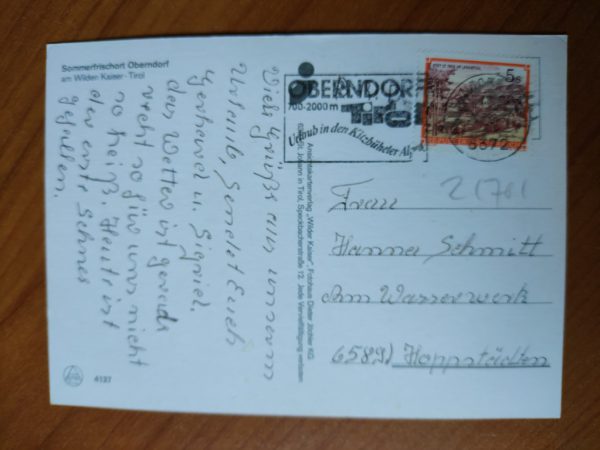 Sommerfrischort Oberndorf
am Wilden Kaiser - Tirol
OBERNDORF
700-2000 m
Tirol
Urlaub in den Kitzbüheler Al
5 S
6372
21701
Viele Grüße aus unserm
Urlaub, sendet Euch
Gerhard u. Sigrid.
das Wetter ist gerade
recht so für uns nicht
so heiß. Heute ist
der erste Schnee
gefallen.
Ansichtskartenverlag „Wilder Kaiser“, Fotohaus Dieter Jöchler KG
St. Johann in Tirol, Speckbacherstraße 12 Jede Vervielfältigung verboten
Frau
Hanna Schmitt
Am Wasserwerk
6589) Hoppstädten
4197